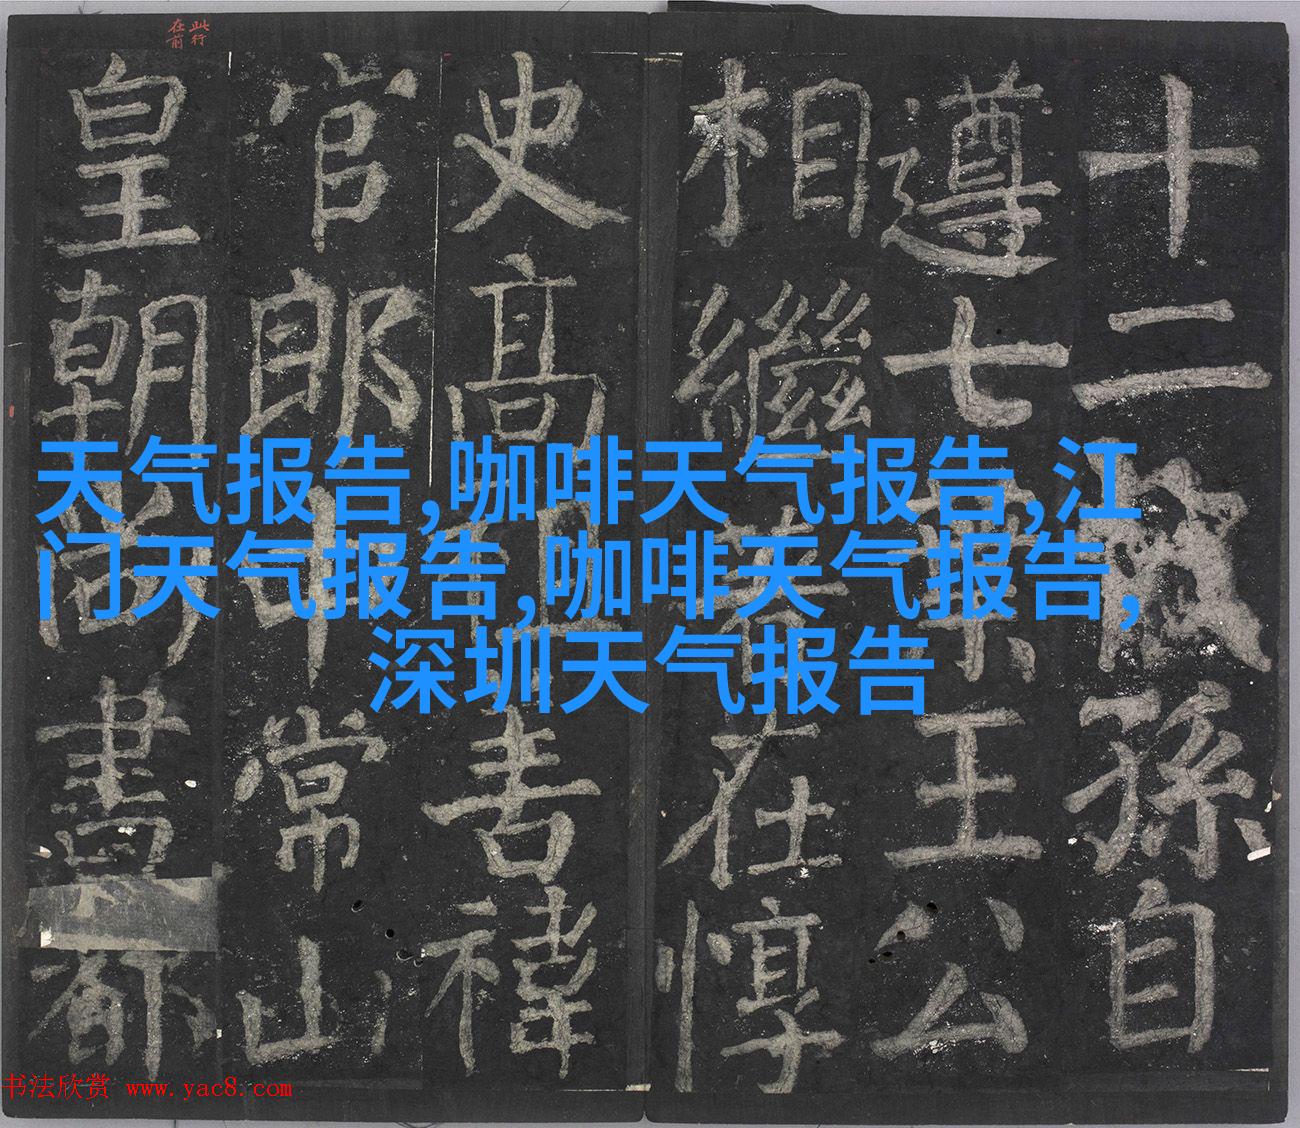 此行
在前
十二孫自
遵七王公
相繼在惇
史高祖
官郎中常山
皇朝尚書都
天气报告,咖啡天气报告,江
门天气报告,咖啡天气报告,
深圳天气报告
书法欣赏 www.yac8.com